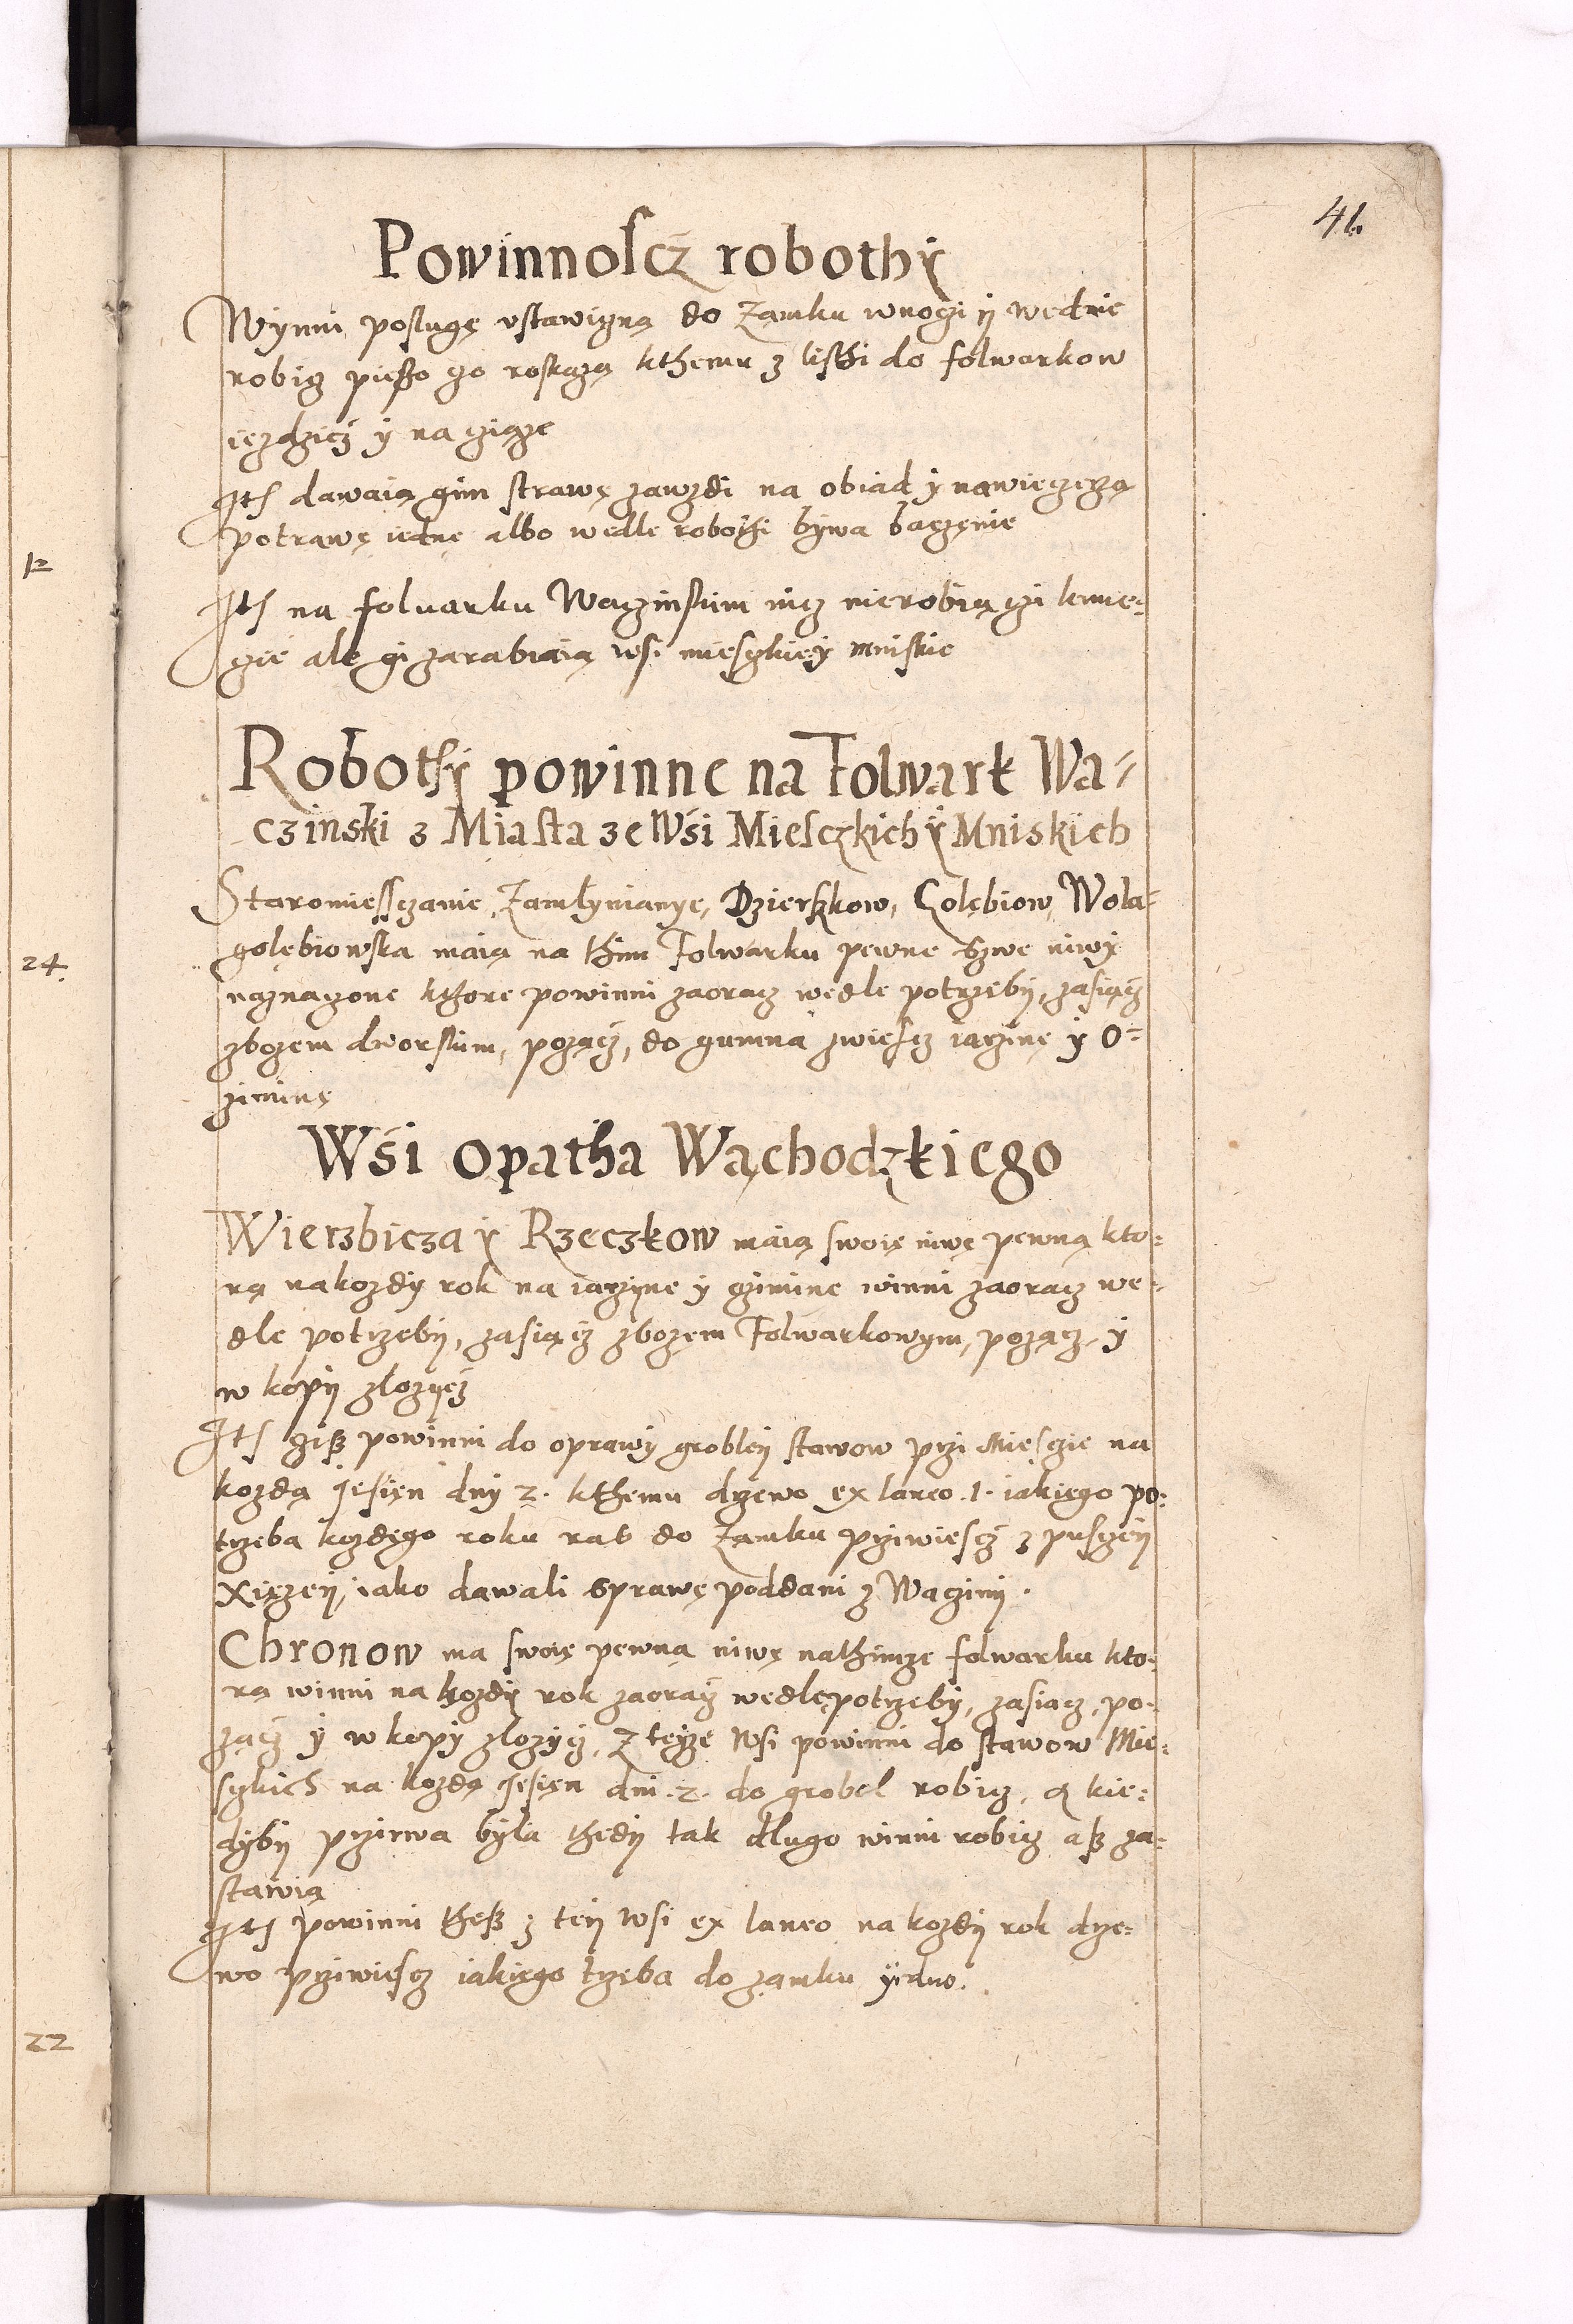 41.
Powinnoscz robothy
Wynni poslugę ustawiczną do Zamku wnoczi y wednie
robicz pieszo czo roskażą kthemu z listhi do folwarkow
iezdzicz y na cziąże
Item dawaią gim strawę zawżdi na obiad y nawieczerzą
potrawę iednę albo wedle robothi bywa baczęnie
Item na folwarku Waczinskim nicz nierobią czi kmie-
czie ale gi zarabiaią wsi miesczkie y mniskie
Robothy powinne na Folwark Wa-
czinski z Miasta ze Wsi Miesczkich y Mniskich
Staromiesczanie, Zamłynianye, Dzierszkow, Golębiow, Wola
golębiowska maią na thim Folwarku pewne szwe niwy
naznaczone kthore powinni zaoracz wedle potrzeby, zasiącz
zbożem dworskim, pożącz, do gumna zwiescz iarzinę y o-
ziminę
Wsi opatha Wąchodzkiego
Wierzbicza y Rzeczkow maią swoię niwę pewną kto-
rą nakożdy rok na iarzynę y ozimine winni zaoracz we-
dle potrzeby, zasiącz zbożem Folwarkowym, pożącz, y
w kopy złożycz
Item cisz powinni do oprawy grobley stawow przi Miesczie na
kożdą Jesięn dny 2. kthemu drzewo ex laneo .1. iakiego po-
trzeba każdęgo roku raz do Zamku przywiescz z pusczey
Xiężey, iako dawali sprawę poddani z Wacziny.
Chronow ma swoię pewną niwę nathimże folwarku kto-
rą winni na kożdy rok zaoracz wedlę potrzeby, zasiacz, po-
żącz y w kopy złożycz, z teyże Wsi powinni do stawow Mie-
sczkich na kożdą Jesięn dni .2. do grobel robicz, A kie-
dyby przirwa była thedy tak długo winni robicz asz za-
stawią
Item powinni thesz z tey Wsi ex laneo na kożdy rok drze-
wo przywiescz iakięgo trzęba do zamku iedno.
12
24.
22